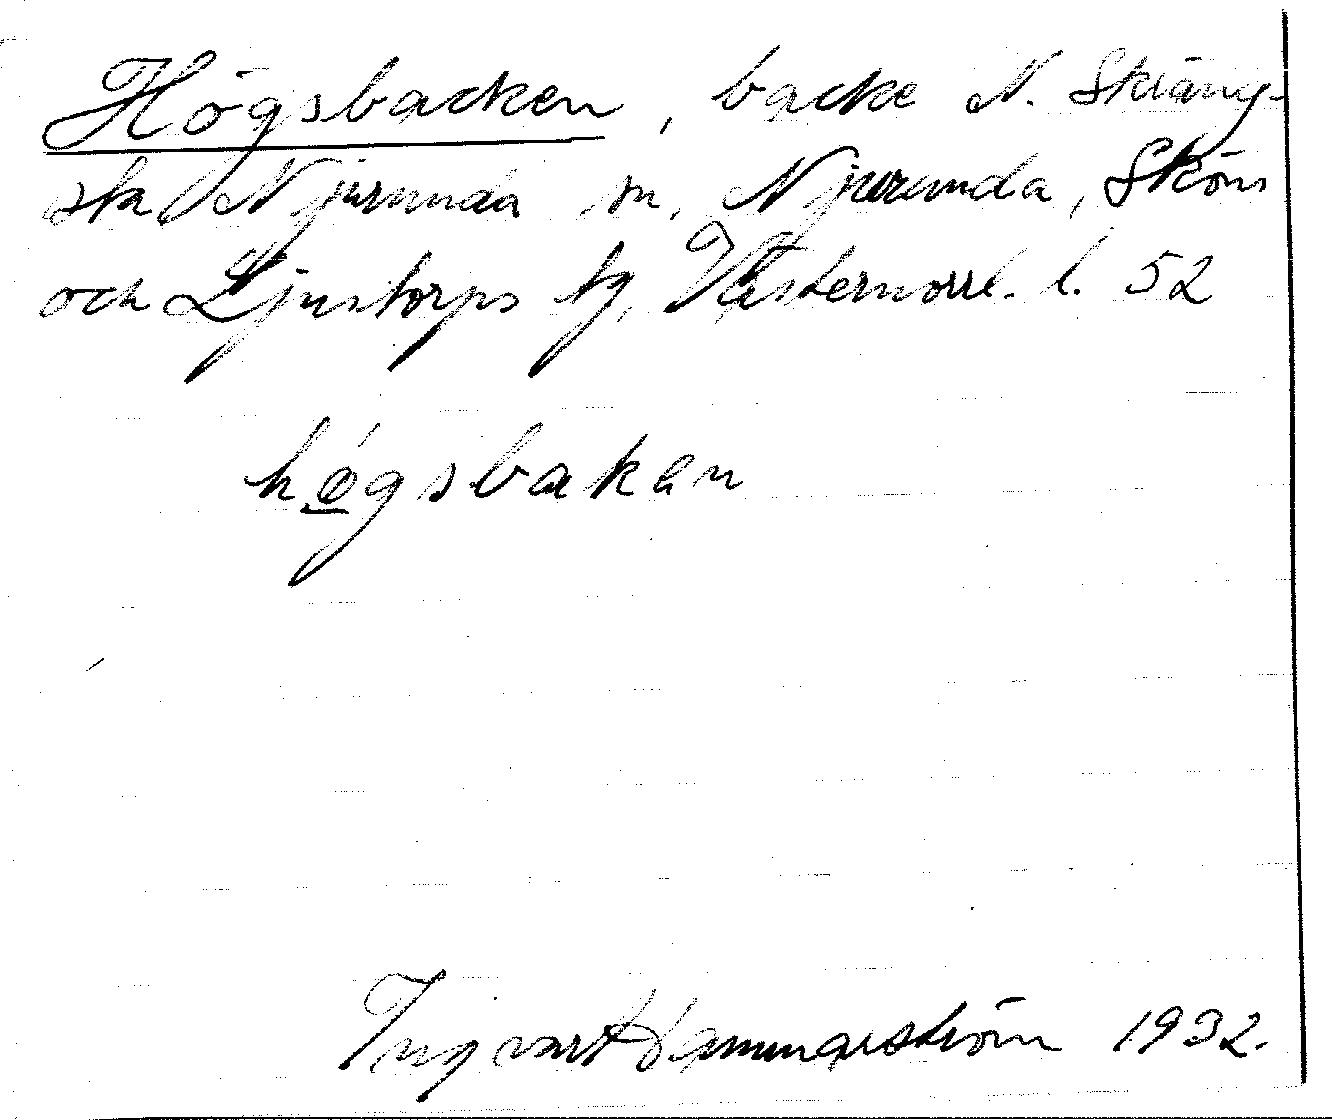 Högsbacken, backe N. Skräng-
sta Njurunda sn, Njurunda, Sköns
och Ljustorps tg, Västernorrl. l. 52
högsbaken
Ingvart Hammarström 1932.